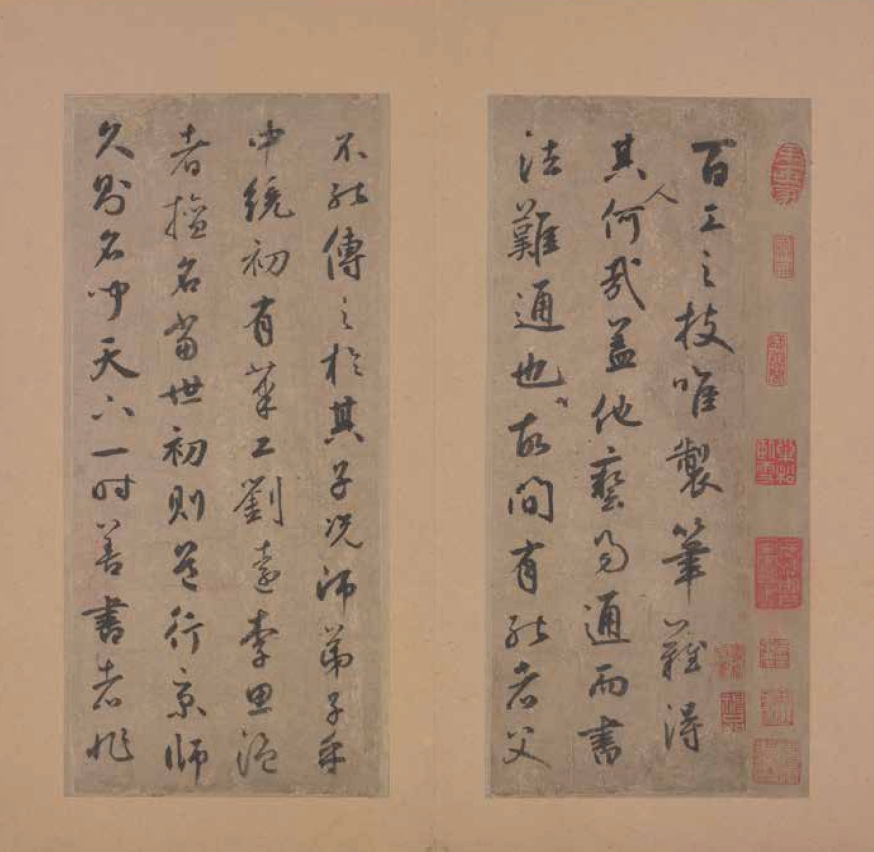 百工之技唯製筆難得
其人何哉蓋他藝易通而書
法難通也故間有能者父
不能傳之於其子況師弟子乎
中統初有筆工劉遠李思溫
者擅名當世初則行京師
久則名聞天下一時善書者非